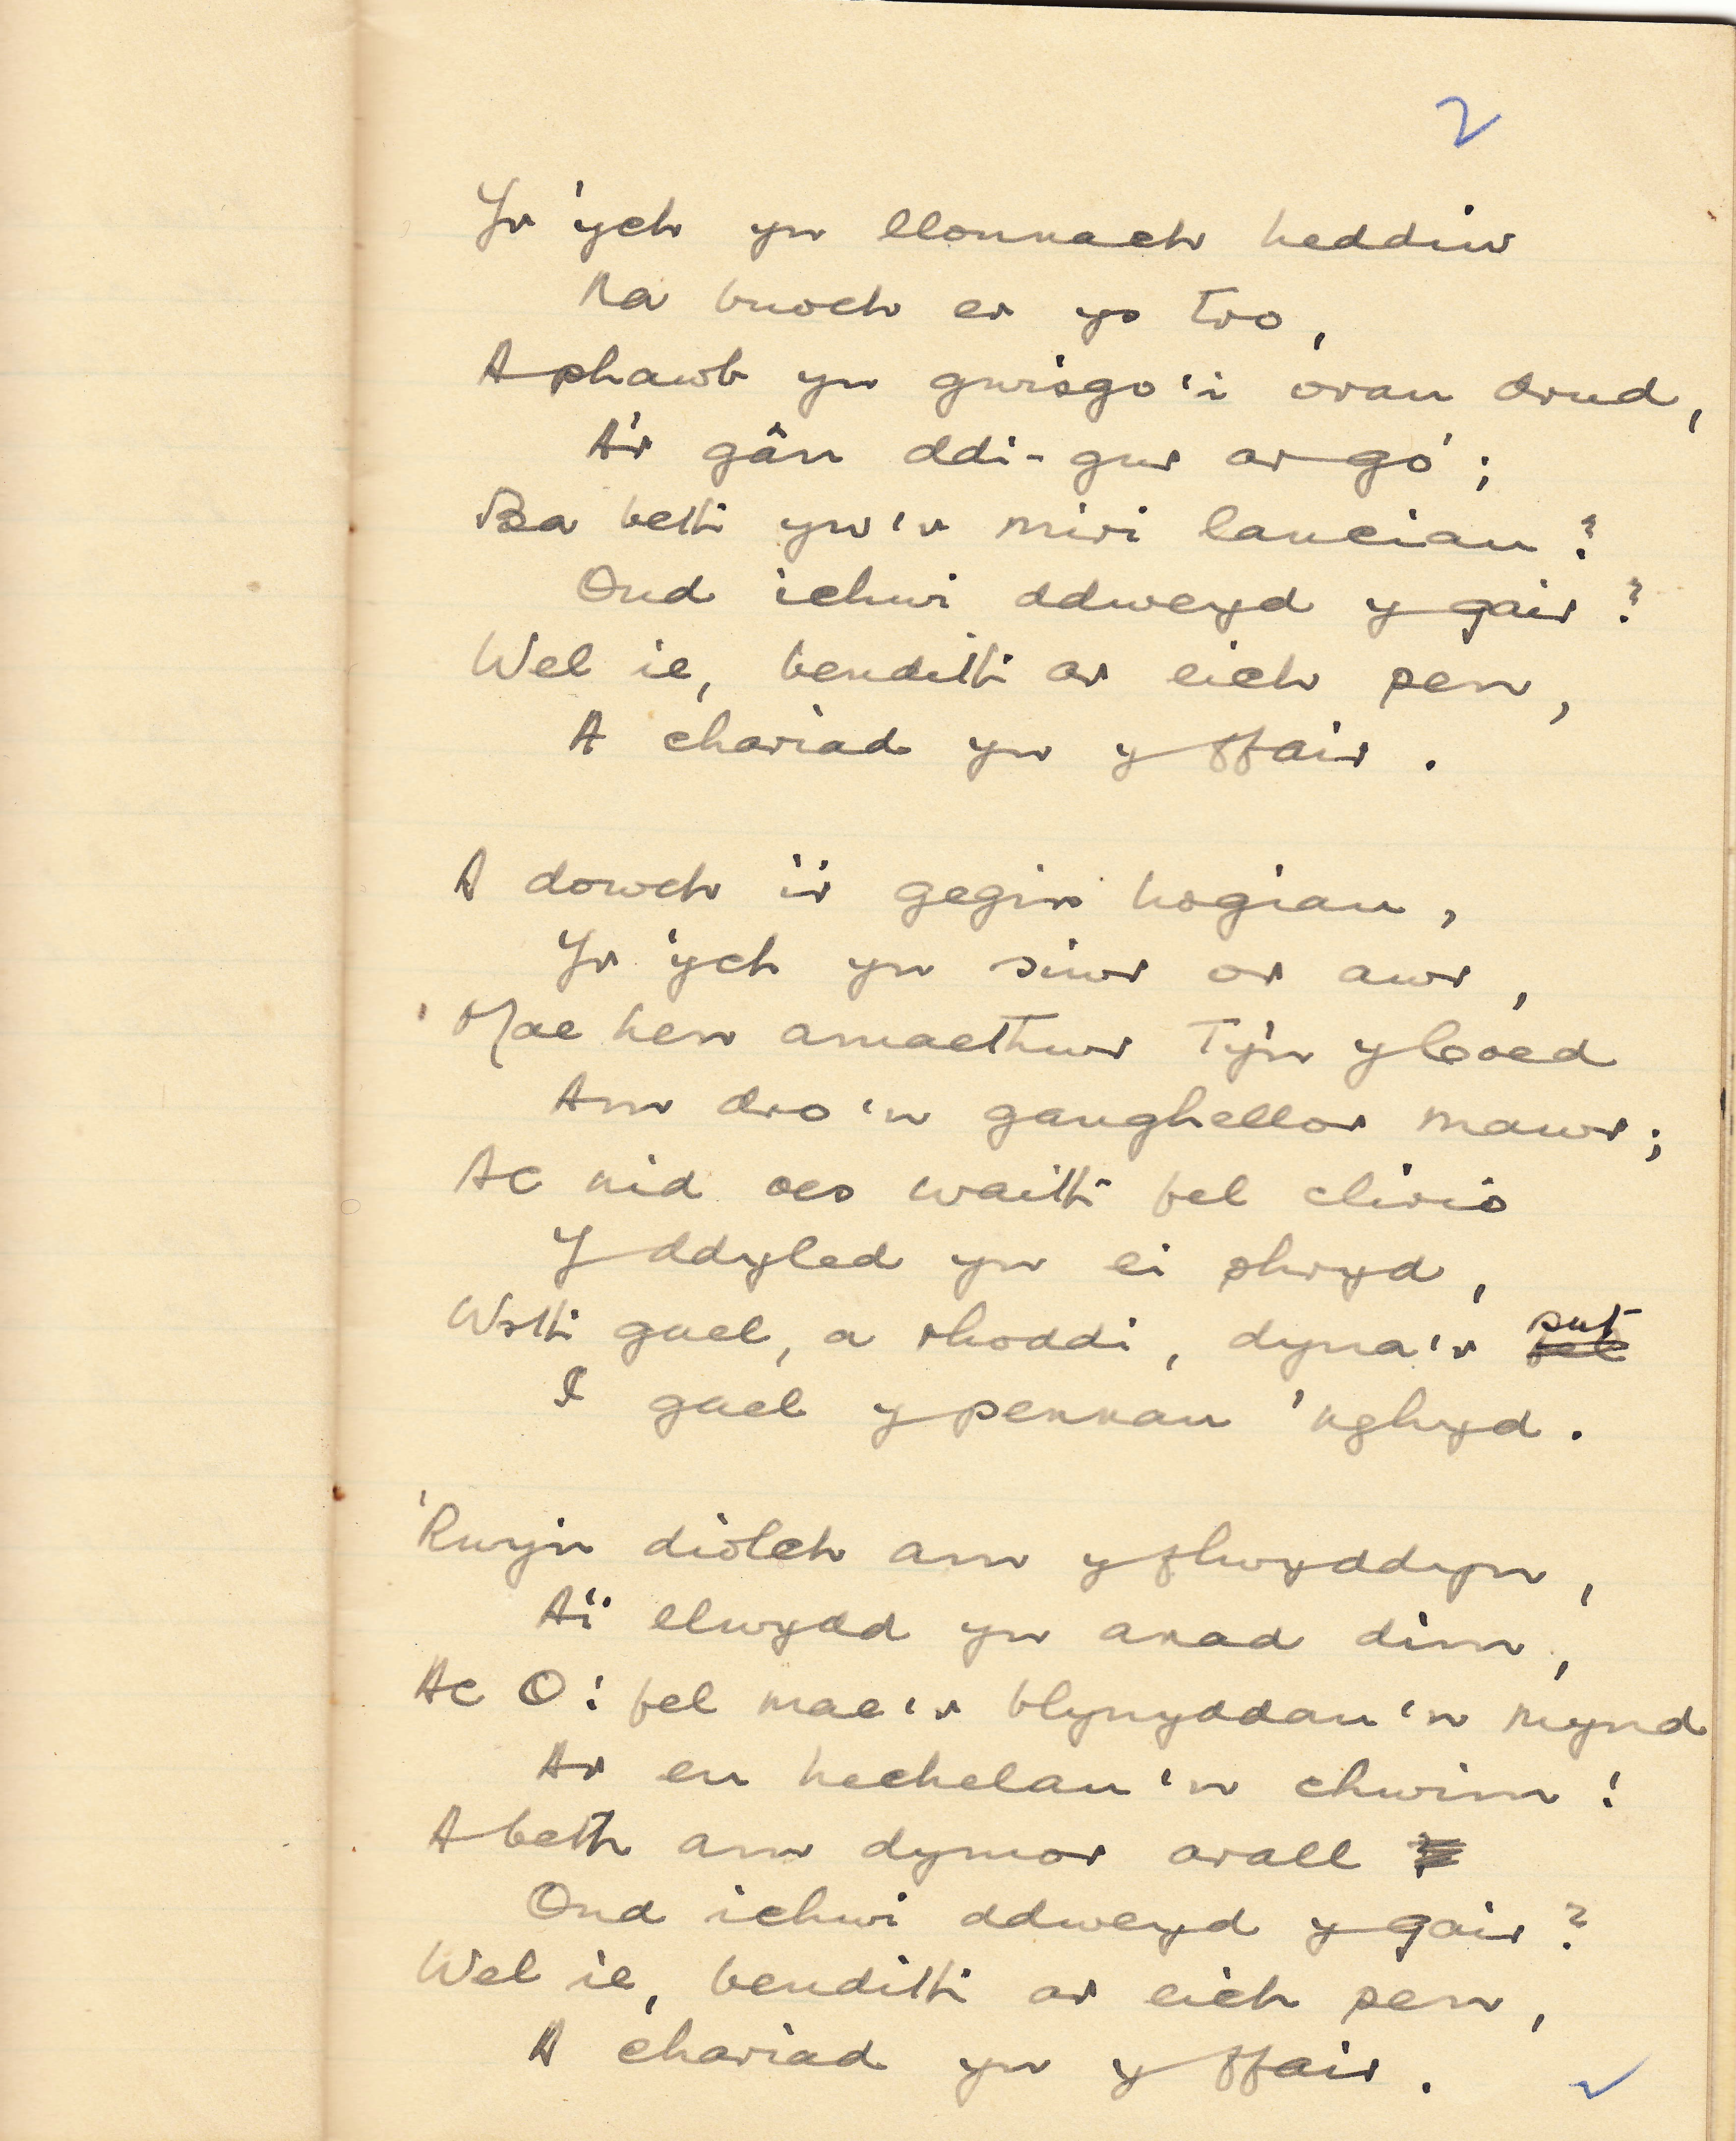 2
Yr 'ych yn llonnach heddiw
Na buoch er ys tro,
A phawb yn gwisgo'i oran drud,
A'r gân ddi-gur ar go';
Ba beth yw'r miri lanciau?
Ond ichwi ddweyd y gair?
Wel ie, bendith ar eich pen,
A chariad yn y ffair.
A dowch i'r gegin hogiau,
Yr 'ych yn siwr or awr,
Mae hen amaethwr Ty'n y Coed
Am dro'n ganghellor mawr;
Ac nid oes waith fel clirio
Y ddyled yn ei phryd,
Wrth gael, a rhoddi, dyna'r sut
I gael y pennau 'nghyd.
'Rwy'n diolch am y flwyddyn,
A'i llwydd yn anad dim,
Ac O! fel mae'r blynyddau'n mynd
Ar eu hechelau'n chwim!
A beth am dymor arall
Ond ichwi ddweyd y gair?
Wel ie, bendith ar eich pen,
A chariad yn y ffair.